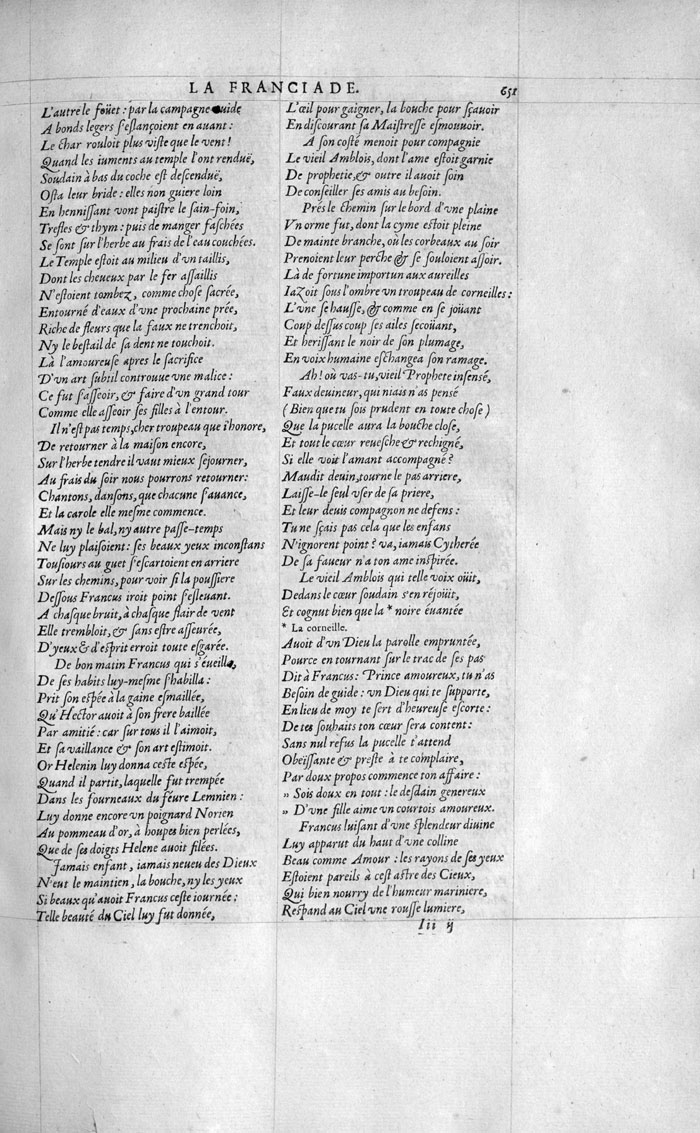 LA FRANCIADE. 651
L'autre le foüet : par la campagne vuide
A bonds legers s'eslançoient en auant :
Le char rouloit plus viste que le vent !
Quand les iuments au temple l'ont renduë,
Soudain à bas du coche est descenduë,
Osta leur bride : elles non guiere loin
En hennissant vont paistre le sain-foin,
Trefles & thym : puis de manger faschées
Se sont sur l'herbe au frais de l'eau couchées.
Le Temple estoit au milieu d'vn taillis,
Dont les cheueux par le fer assaillis
N'estoient tombez, comme chose sacrée,
Entourné d'eaux d'vne prochaine prée,
Riche de fleurs que la faux ne trenchoit,
Ny le bestail de sa dent ne touchoit.
Là l'amoureuse apres le sacrifice
D'vn art subtil controuue vne malice :
Ce fut s'asseoir, & faire d'vn grand tour
Comme elle asseoir ses filles à l'entour.
Il n'est pas temps, cher troupeau que i'honore,
De retourner à la maison encore,
Sur l'herbe tendre il vaut mieux sejourner,
Au frais du soir nous pourrons retourner:
Chantons, dansons, que chacune s'auance,
Et la carole elle mesme commence.
Mais ny le bal, ny autre passe-temps
Ne luy plaisoient : ses beaux yeux inconstans
Tousiours au guet s'escartoient en arriere
Sur les chemins, pour voir si la poussiere
Dessous Francus iroit point s'esleuant.
A chasque bruit, à chasque flair de vent
Elle trembloit, & sans estre asseurée,
D'yeux & d'esprit erroit toute esgarée.
De bon matin Francus qui s'éueilla,
De ses habits luy-mesme s'habilla :
Prit son espée à la gaine esmaillée,
Qu'Hector auoit à son frere baillée
Par amitié : car sur tous il l'aimoit,
Et sa vaillance & son art estimoit.
Or Helenin luy donna ceste espée,
Quand il partit, laquelle fut trempée
Dans les fourneaux du féure Lemnien :
Luy donne encore vn poignard Norien
Au pommeau d'or, à houpes bien perlées,
Que de ses doigts Helene auoit filées.
Jamais enfant, iamais neueu des Dieux
N'eut le maintien, la bouche, ny les yeux
Si beaux qu'auoit Francus ceste iournée :
Telle beauté du Ciel luy fut donnée,
L'œil pour gaigner, la bouche pour sçauoir
En discourant sa Maistresse esmouuoir.
A son costé menoit pour compagnie
Le vieil Amblois, dont l'ame estoit garnie
De prophetie, & outre il auoit soin
De conseiller ses amis au besoin.
Prés le chemin sur le bord d'vne plaine
Vn orme fut, dont la cyme estoit pleine
De mainte branche, où les corbeaux au soir
Prenoient leur perche & se souloient assoir.
Là de fortune importun aux aureilles
Iazoit sous l'ombre vn troupeau de corneilles :
L'vne se hausse, & comme en se joüant
Coup dessus coup ses ailes secoüant,
Et herissant le noir de son plumage,
En voix humaine eschangea son ramage.
Ah ! où vas-tu, vieil Prophete insensé,
Faux deuineur, qui n'ais n'as pensé
(Bien que tu sois prudent en toute chose)
Que la pucelle aura la bouche close,
Et tout le cœur reuesche & rechigné,
Si elle voit l'amant accompagné ?
Maudit deuin, tourne le pas arriere,
Laisse-le seul vser de sa priere,
Et leur deuis compagnon ne defens :
Tu ne sçais pas cela que les enfans
N'ignorent point ? va, iamais Cytherée
De sa faueur n'a ton ame inspirée.
Le vieil Amblois qui telle voix oüit,
Dedans le cœur soudain s'en réjoüit,
Et cognut bien que la * noire éuantée
* La corneille.
Auoit d'vn Dieu la parolle empruntée,
Pource en tournant sur le trac de ses pas
Dit à Francus : Prince amoureux, tu n'as
Besoin de guide : vn Dieu qui te supporte,
En lieu de moy te sert d'heureuse escorte :
De tes souhaits ton cœur sera content :
Sans nul refus la pucelle t'attend
Obeïssante & preste à te complaire,
Par doux propos commence ton affaire :
» Sois doux en tout : le desdain genereux
» D'vne fille aime vn courtois amoureux.
Francus luisant d'vne splendeur diuine
Luy apparut du haut d'vne colline
Beau comme Amour : les rayons de ses yeux
Estoient pareils à cest astre des Cieux,
Qui bien nourry de l'humeur mariniere,
Respand au Ciel vne rousse lumiere,
Iii ij